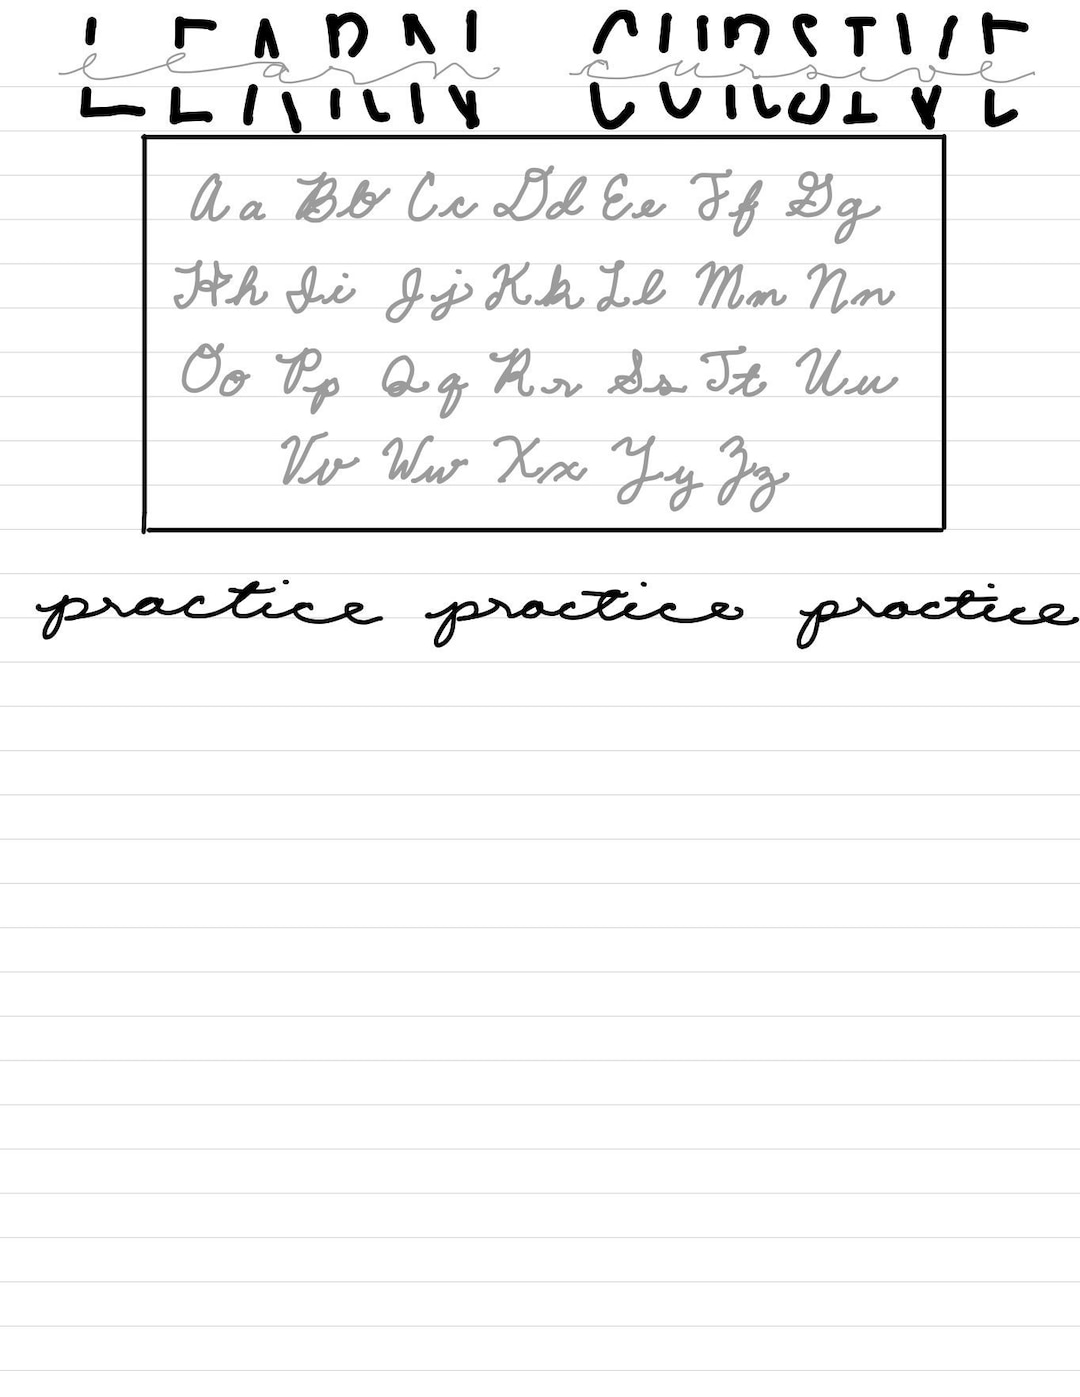 LEARN CURSIVE
learn cursive
Aa Bb Cc Dd Ee Ff Gg
Hh Ii Jj Kk Ll Mm Nn
Oo Pp Qq Rr Ss Tt Uu
Vv Ww Xx Yy Zz
practice practice practice